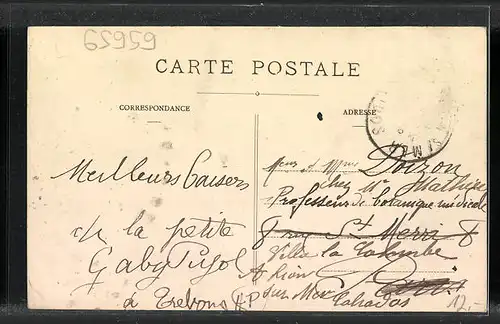 65959
CARTE POSTALE
CORRESPONDANCE
ADRESSE
Meilleurs Baisers
de la petite
Gaby Pujol
à Trebons H P
Mr et Mme Doizon
chez Mr Mathieu
Professeur de botanique médicale
7 rue St Merri 7
Villa la Colombe
A Lion
sur Mer Calvados
12.-